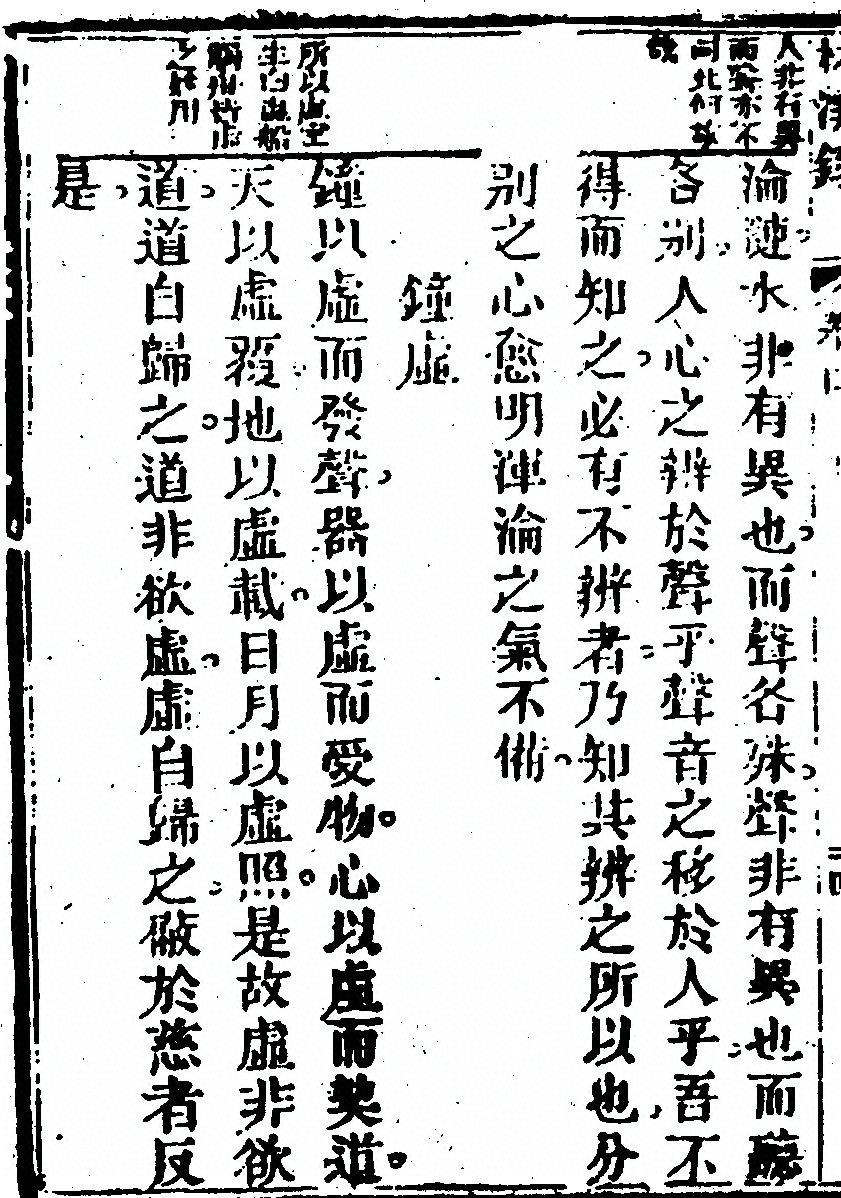 人非有異
而聲亦不
同此何故
哉
淪漣水非有異也而聲各殊聲非有異也而聽
各別人心之辨於聲乎聲音之移於人乎吾不
得而知之必有不辨者乃知其辨之所以也分
別之心愈明渾淪之氣不備
鐘虛
所以虛空
鐘以虛而發聲器以虛而受物心以虛而契道
天以虛覆地以虛載日月以虛照是故虛非欲
道道自歸之道非欲虛虛自歸之於慈者反
是